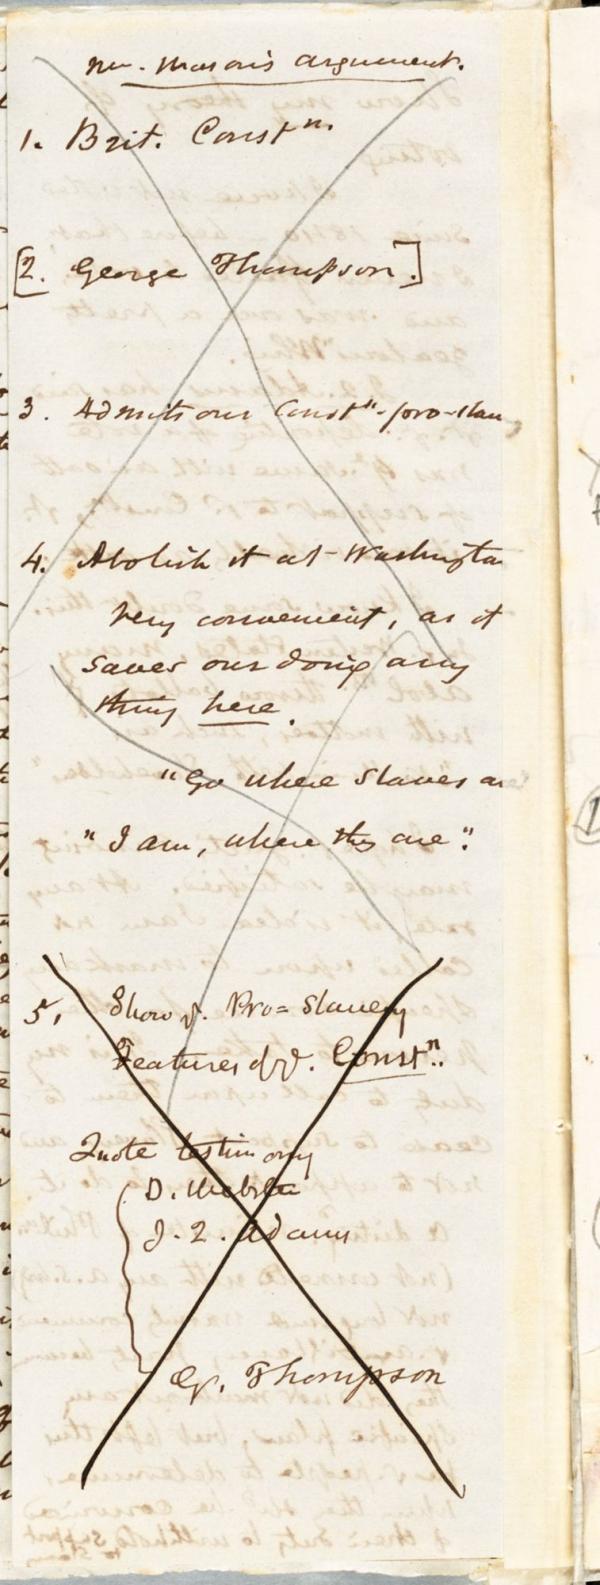 Mr. Mason's argument.
1. Brit. Constn.
[2. George Thompson.]
3. Admits our Constn. pro-slav
4. Abolish it at Washington
Very convenient, as it
saves our doing any
thing here.
"Go where Slaves are
"I am, where they are".
5. Show ye. Pro=Slavery
Features of ye. Constn..
Quote testimony
D. Webster
J. Q. Adams
G. Thompson